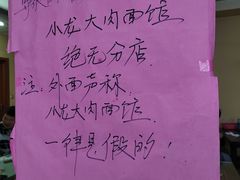 小龙大肉面馆
绝无分店.
注:外面声称
小龙大肉面馆.
一律是假的!